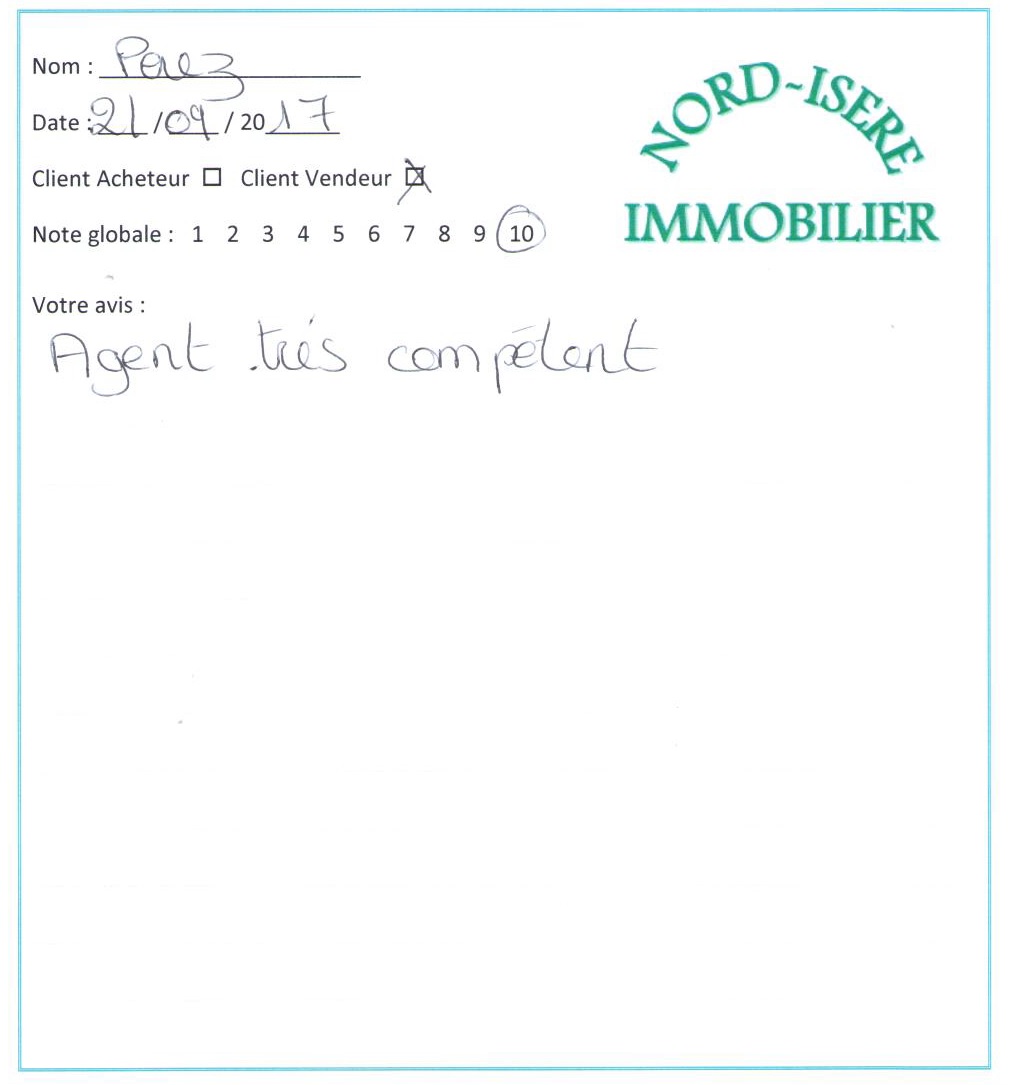 Nom : Perez
Date : 21/09/2017
Client Acheteur ☐ Client Vendeur ☒
Note globale : 1 2 3 4 5 6 7 8 9 10
NORD-ISERE
IMMOBILIER
Votre avis :
Agent trés compétent